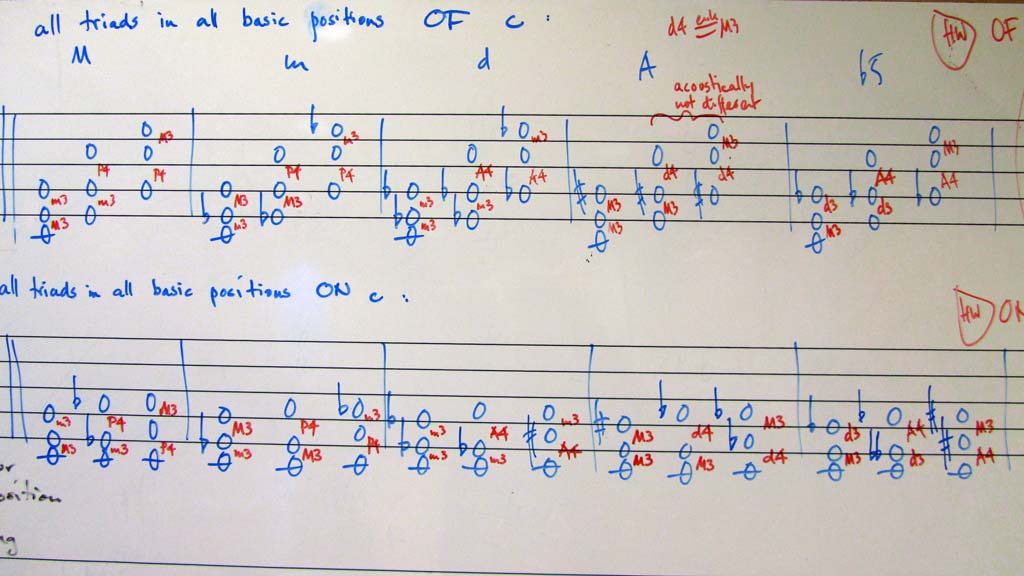 all triads in all basic positions OF c :
d4 enh M3
HW OF
M m d A b5
acoustically
not different
M3 m3 m3 M3 M3
P4 P4 A4 d4 d4 A4
m3 m3 P4 M3 M3 P4 m3 m3 A4 M3 M3 d3 d3 A4
M3 m3 m3 M3 M3
all triads in all basic positions ON c :
HW ON
m3 P4 M3 M3 P4 m3 m3 A4 m3 M3 d4 M3 d3 A4 M3
M3 m3 P4 m3 M3 P4 m3 m3 A4 M3 M3 d4 M3 d3 A4
or
osition
ng